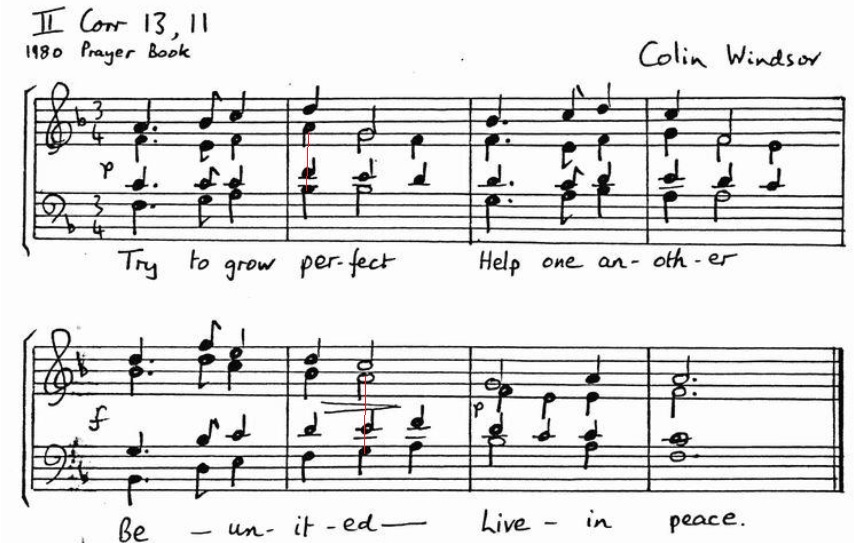 II Corr 13, 11
1980 Prayer Book
Colin Windsor
3
4
p
3
4
Try to grow per-fect Help one an-oth-er
f
p
Be - un-it-ed— Live - in peace.